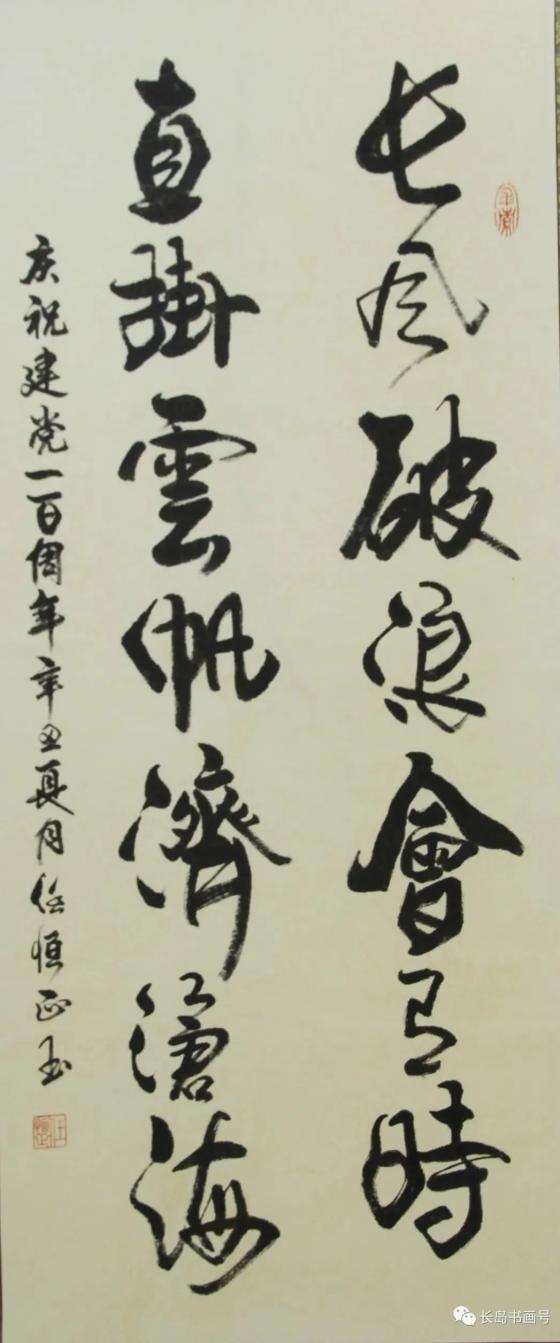 长风破浪會有時
直掛雲帆濟滄海
庆祝建党一百周年辛丑夏月任恒正书
长岛书画号